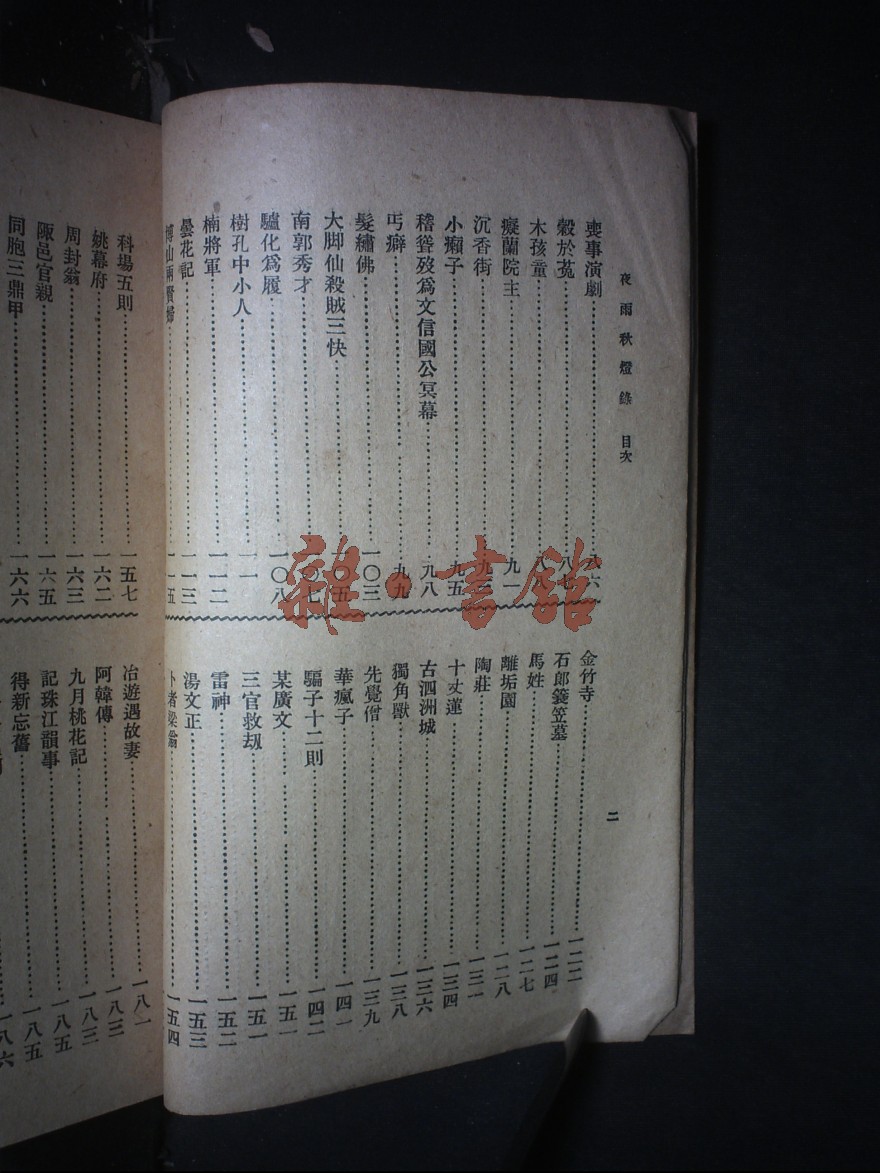 夜雨秋燈錄 目次
二
喪事演劇……八六
穀於菟……八七
木孩童……八八
癡蘭院主……九一
沉香街……九三
小癩子……九五
稽聳歿爲文信國公冥幕……九八
丐癖……九九
髮繡佛……一〇三
大脚仙殺賊三快……一〇五
南郭秀才……一〇七
驢化爲履……一〇八
樹孔中小人……一一一
楠將軍……一一二
曇花記……一一三
博山兩賢婦……一一五
金竹寺……一二二
石郎簑笠墓……一二四
馬姓……一二七
離垢園……一二八
陶莊……一三一
十丈蓮……一三四
古泗洲城……一三六
獨角獸……一三八
先覺僧……一三九
華瘋子……一四一
騙子十二則……一四二
某廣文……一五一
三官救劫……一五一
雷神……一五二
湯文正……一五三
卜者梁翁……一五四
科場五則……一五七
姚幕府……一六二
周封翁……一六三
陬邑官親……一六五
同胞三鼎甲……一六六
冶遊遇故妻……一八一
阿韓傳……一八三
九月桃花記……一八三
記珠江韻事……一八五
得新忘舊……一八五
一八六
雜·書館